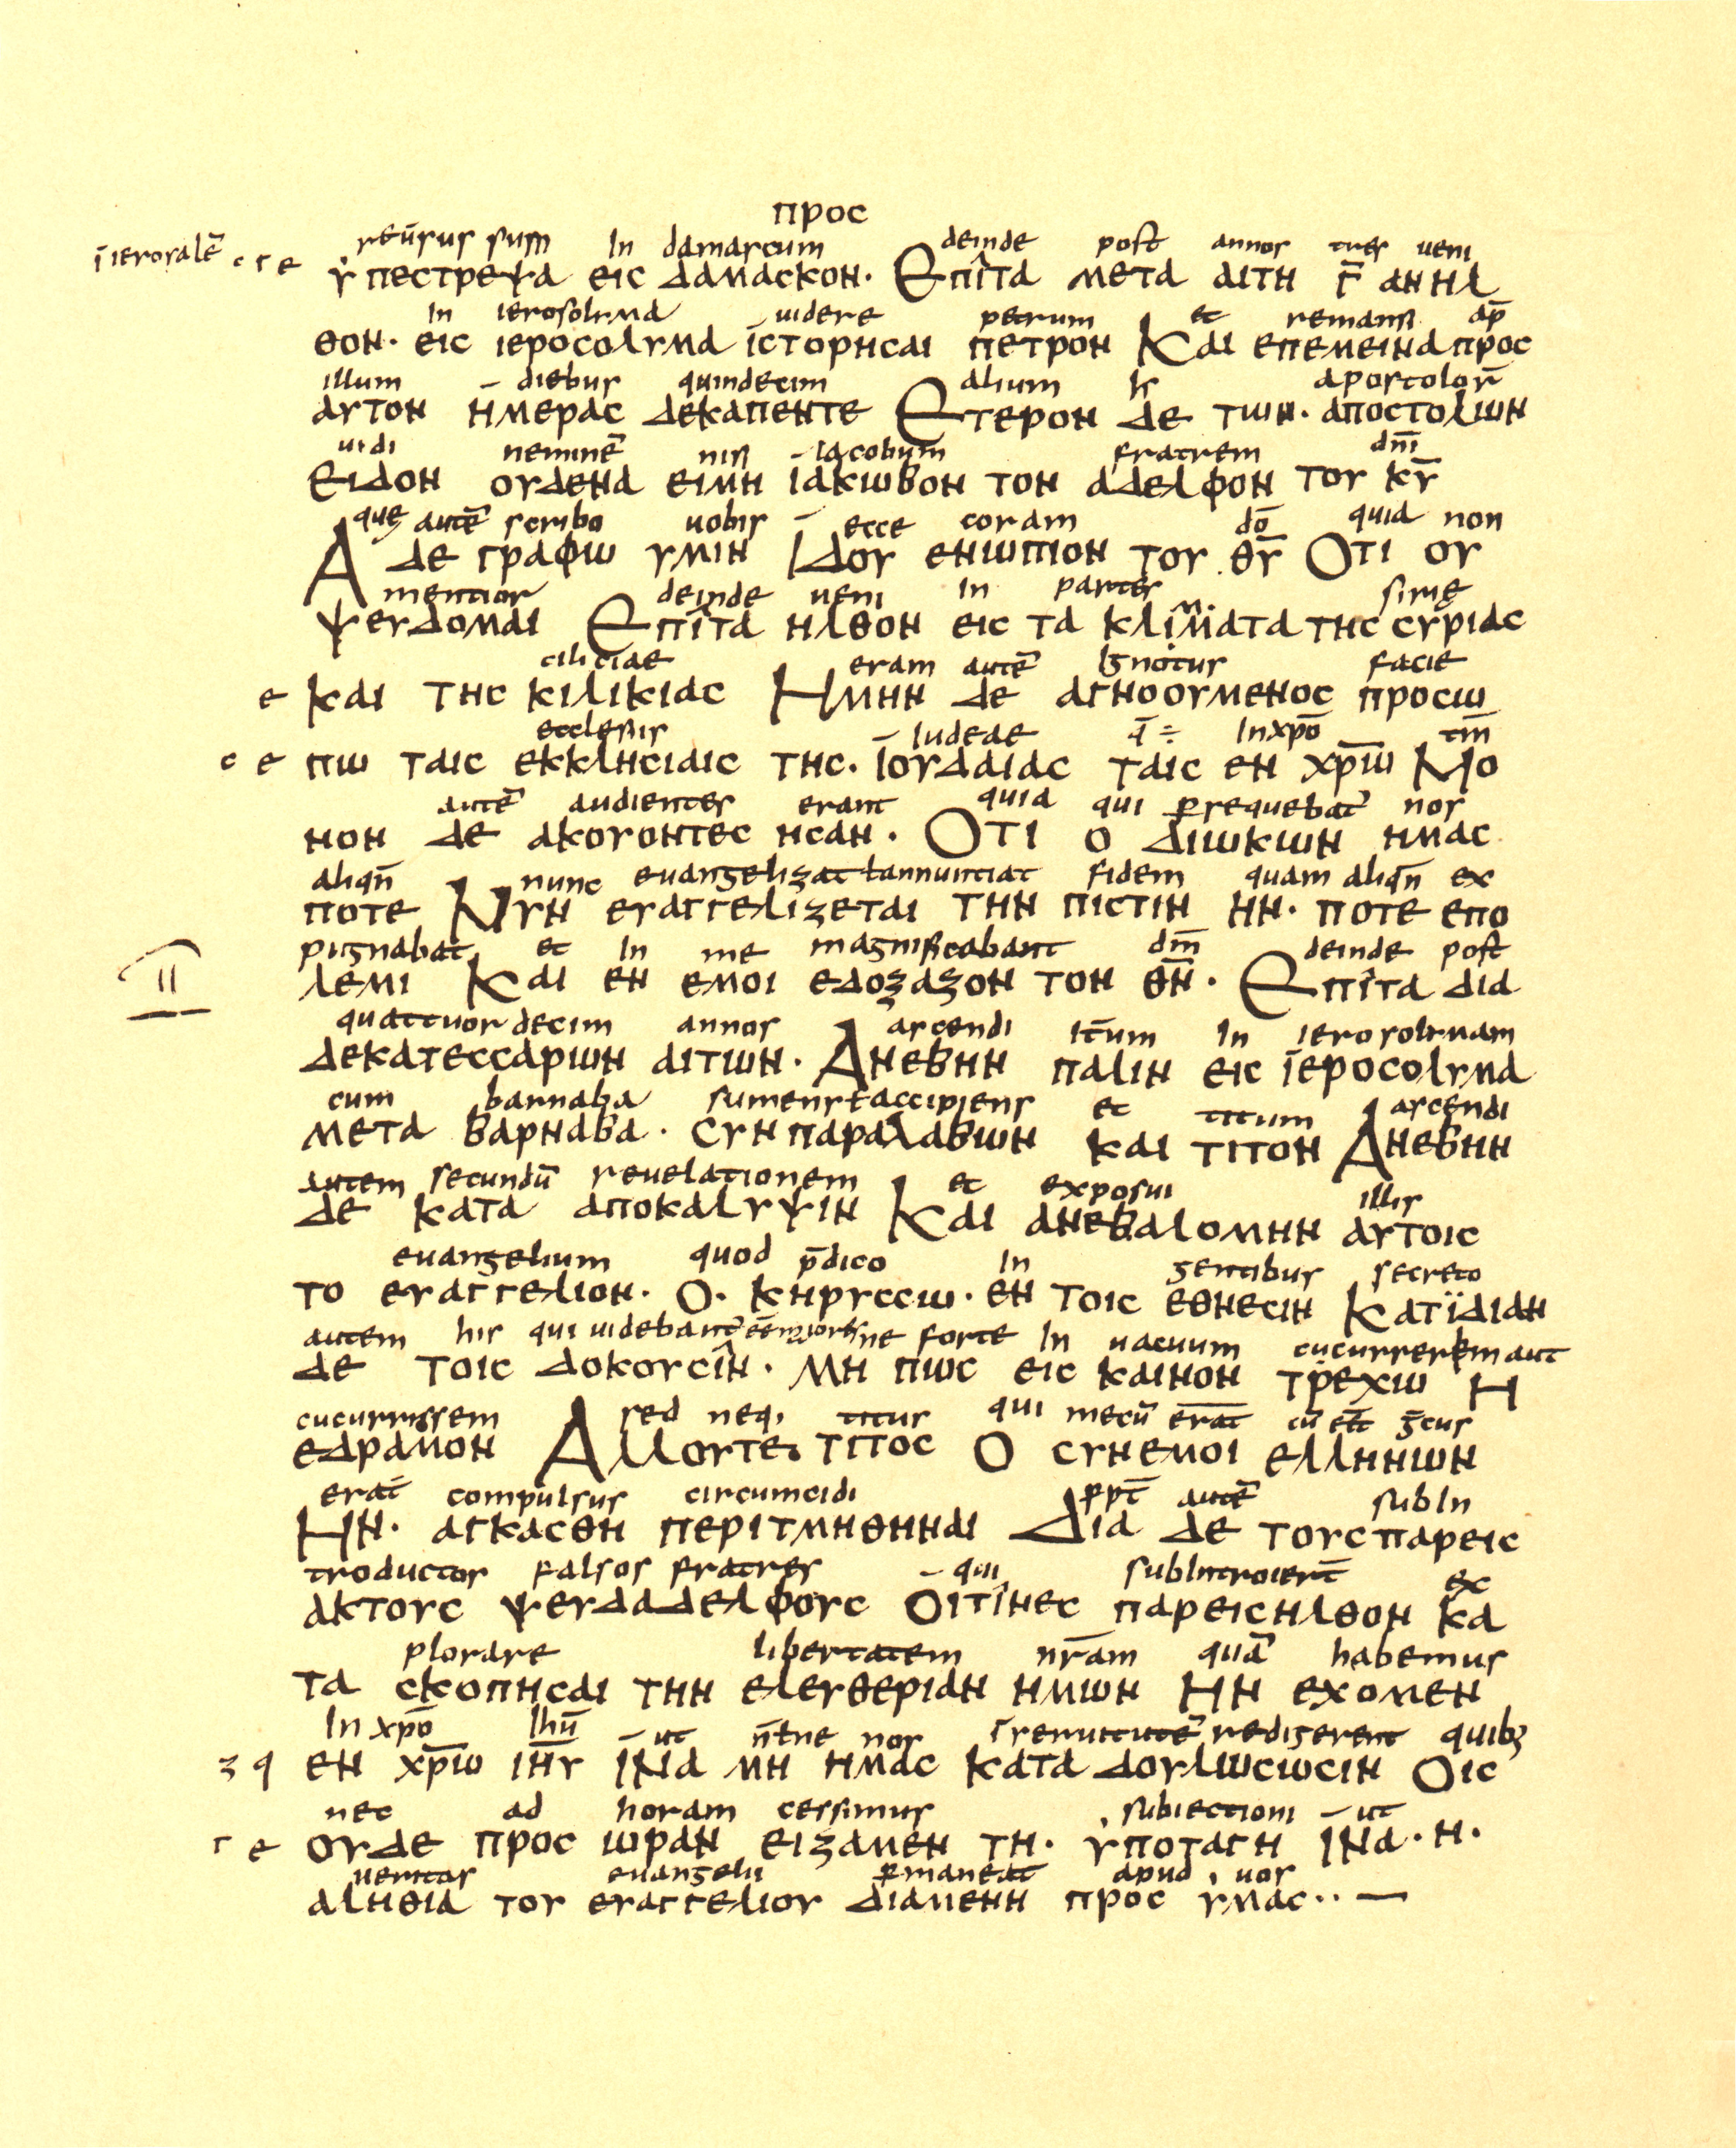 προς
ī ierosalē c r e reūsus sum In damascum deinde post annos tres ueni
ὑπεστρεψα εις δαμασκον· Επιτα μετα αιτη Γ̄ ανηλ
In ierosolima uidere petrum et remansi ap̄
θον· εις ιεροσολυμα ιστορησαι πετρον Και επεμεινα προς
illum diebus quindecim alium apostolor̄
αυτον ημερας δεκαπεντε Ετερον δε των· αποστολων
uidi neminē nisi iacobum fratrem dn̄i
Ειδον ουδενα ειμη ιακωβον τον αδελφον του κ̄ῡ
que autē scribo uobis ecce coram dō quia non
Α δε γραφω υμιν Ιδου ενωπιον του θ̄ῡ Οτι ου
mentior deinde ueni In partes sirię
ψευδομαι Επιτα ηλθον εις τα κλιματα της συριας
ciliciae eram autē Ignotus facie
e και της κιλικιας Ημην δε αγνοουμενος προσω
ecclesiis Iudeae q̄ ÷ Inxpō tm̄
c e πω ταις εκκλησιαις της· ιουδαιας ταις εν χρ̄ω Μο
autē audientes erant quia qui psequebat̄ nos
νον δε ακουοντες ησαν· Οτι ο διωκων ημας
aliqn̄ nunc euangelizat ł annuntiat fidem quam aliqn̄ ex
ποτε Νυν ευαγγελιζεται την πιστιν ην· ποτε επο
pugnabat et In me magnificabant dm̄ deinde post
λεμι Και εν εμοι εδοξαζον τον θ̄ν̄· Επιτα δια
II
quattuor decim annos ascendi it̄um In ierosolimam
δεκατεσσαρων αιτων· Ανεβην παλιν εις ιεροσολυμα
cum barnaba sumens ł accipiens et titum ascendi
μετα βαρναβα· συνπαραλαβων και τιτον Ανεβην
autem secundū reuelationem et exposui illis
δε κατα αποκαλυψιν Και ανεβαλομην αυτοις
euangelium quod p̄dico In gentibus secreto
το ευαγγελιον· ο· κηρυσσω· εν τοις εθνεσιν Κατϊδιαν
autem his qui uidebant̄ ne forte In uacuum
δε τοις δοκουσιν· μη πως εις καινον τρεχω Η
cucurrissem sed neq; titus qui mecū erat cū eēt ḡcus
εδραμον Αλλουτε τιτος ο συνεμοι ελληνων
erat compulsus circumcidi ppt̄ autē subIn
Ην· αγκασθη περιτμηθηναι Δια δε τουσπαρεις
troductos falsos fratres qui subIntroiert̄ ex
ακτους ψευδαδελφους οιτινες παρεισηλθον κα
plorare libertatem nr̄am quā habemus
τα σκοπησαι την ελευθεριαν ημων Ην εχομεν
In xpō Ihū ut n̄ ł ne nos ī seruitutē redigerent quibȝ
ȝ q εν χρ̄ω ιη̄υ ινα μη ημας κατα δουλωσωσιν Οις
nec ad horam cessimus subiectioni ut
r e ουδε προς ωραν ειξαμεν τη· ὑποταγη ινα· η·
ueritas euangelii pmaneat apud uos
αληθια του ευαγγελιου διαμενη προς ὑμας·· —